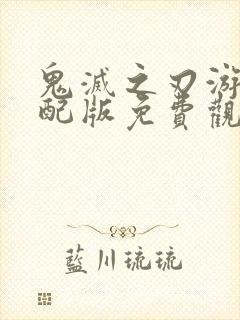 鬼滅之刃游
配版免費觀
藍川琉琉